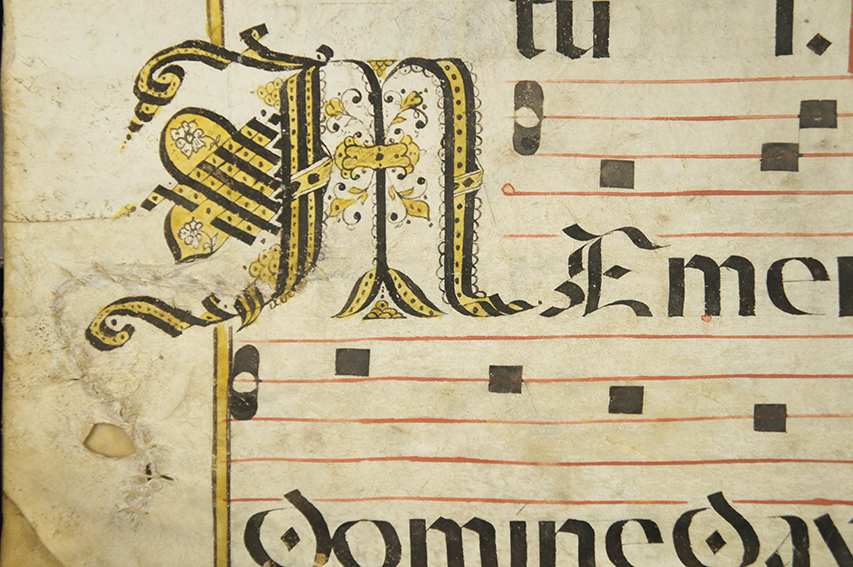 tu i.
MEmen
Domine Dav